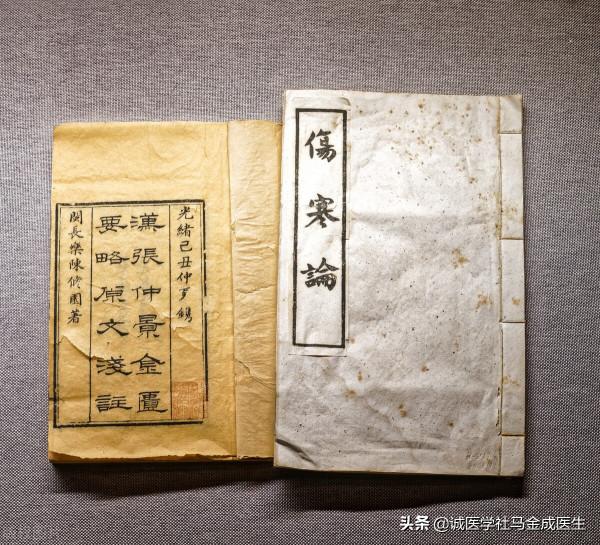 光緒己丑仲夛鐫
漢張仲景金匱
要略原文淺註
閩長樂陳修園著
傷寒論
头条@诚医学社马金成医生